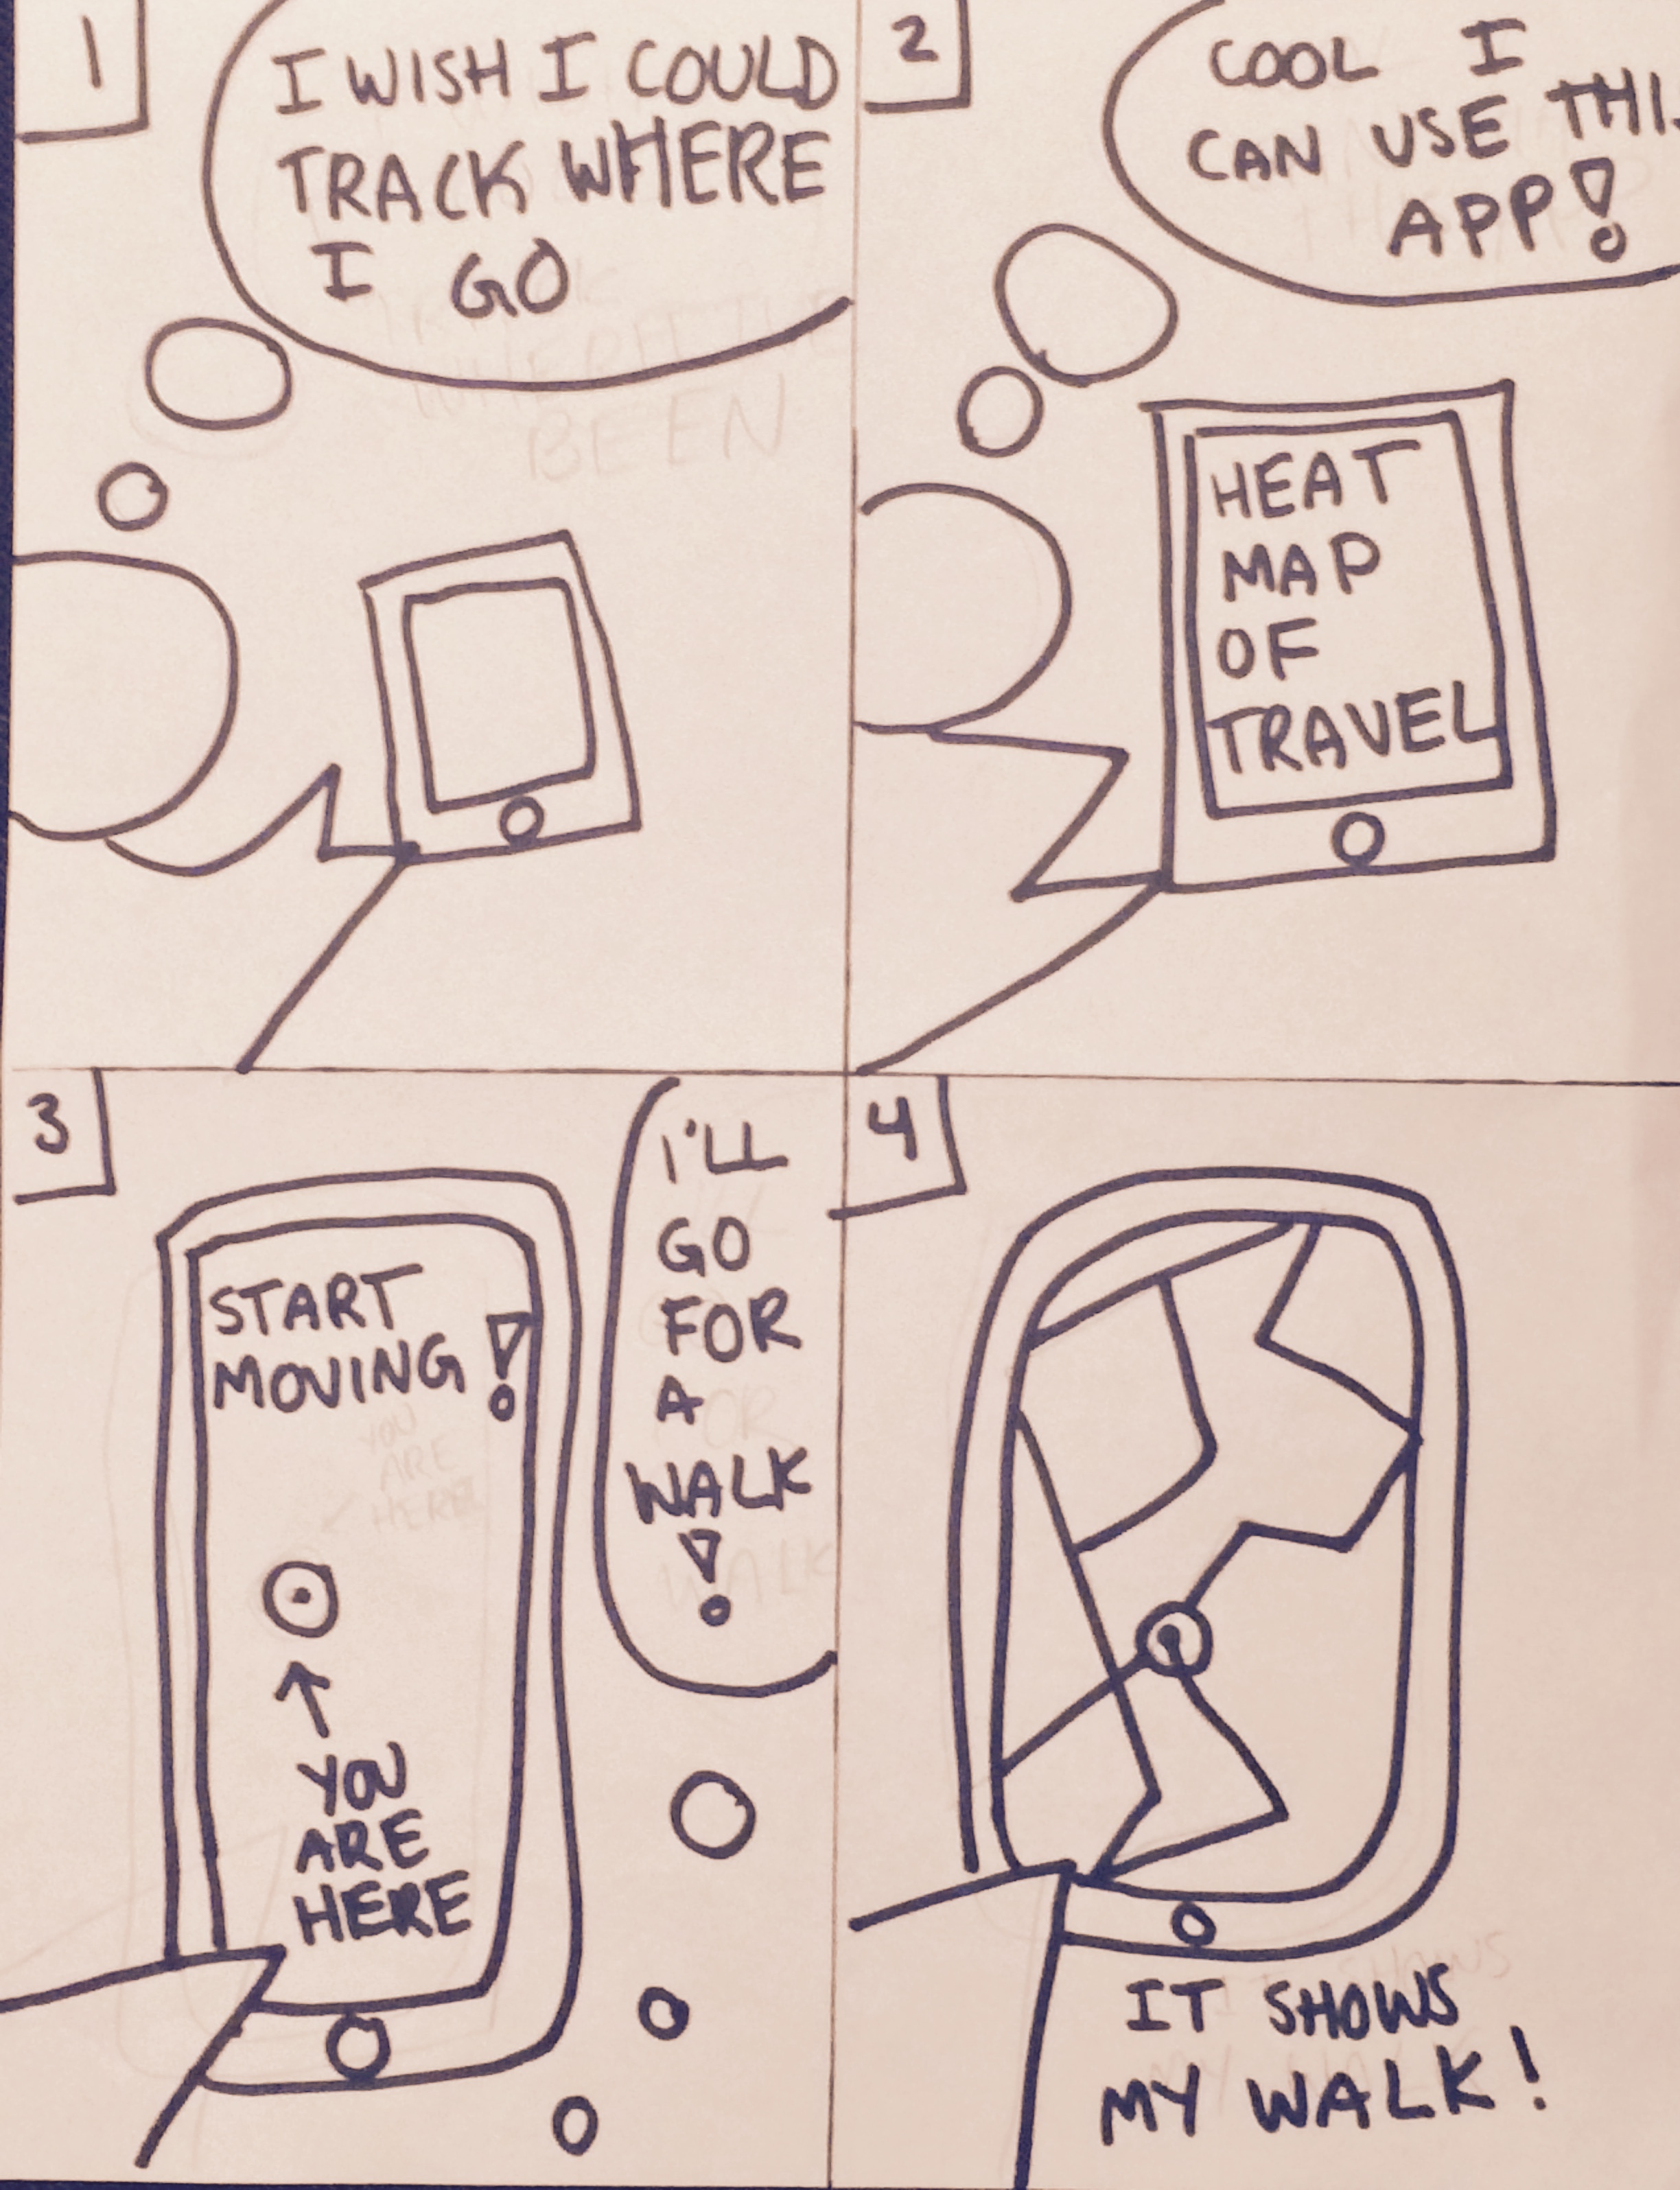 1
I WISH I COULD
TRACK WHERE
I GO
2
COOL I
CAN USE THIS
APP!
HEAT
MAP
OF
TRAVEL
3
START
MOVING!
YOU
ARE
HERE
I'LL
GO
FOR
A
WALK
!
4
IT SHOWS
MY WALK!